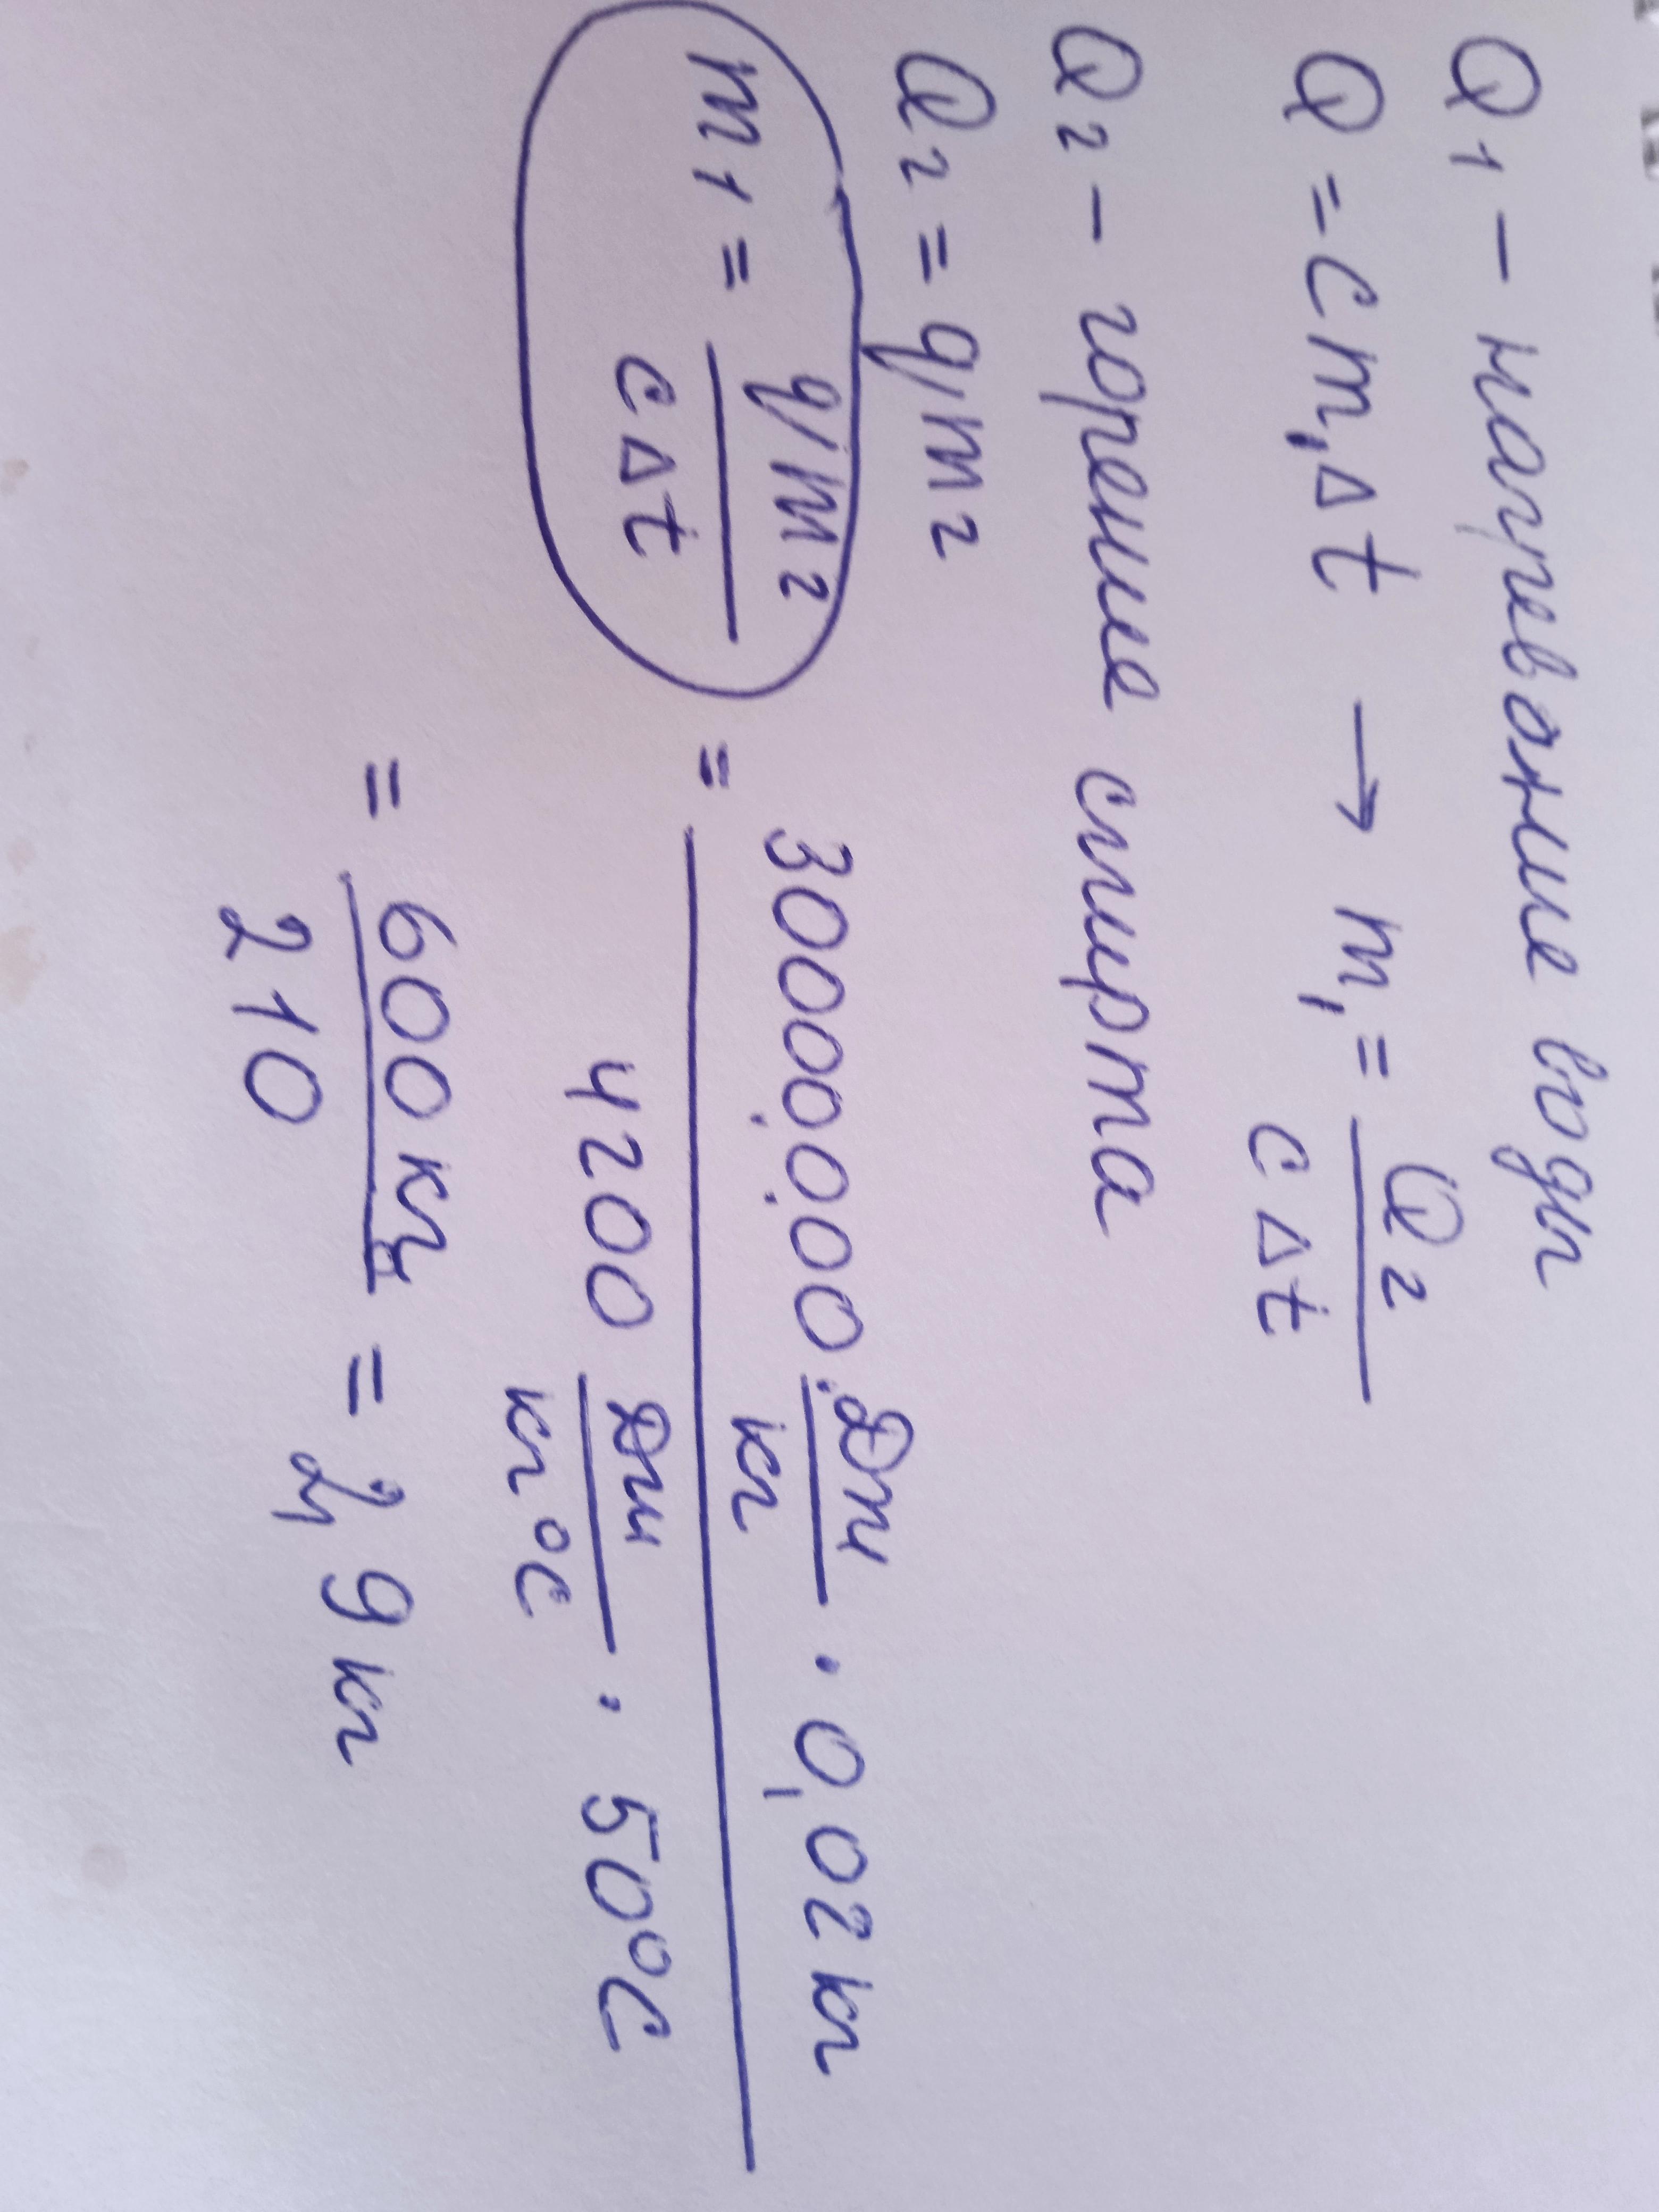 Q₁ – нагревание воды
Q = cm₁Δt → m₁ = Q₂ / cΔt
Q₂ – горение спирта
Q₂ = qm₂
m₁ = qm₂ / cΔt = 30000000 Дж/кг · 0,02 кг / 4200 Дж/кг°C · 50°C
= 600 кг / 210 = 2,9 кг